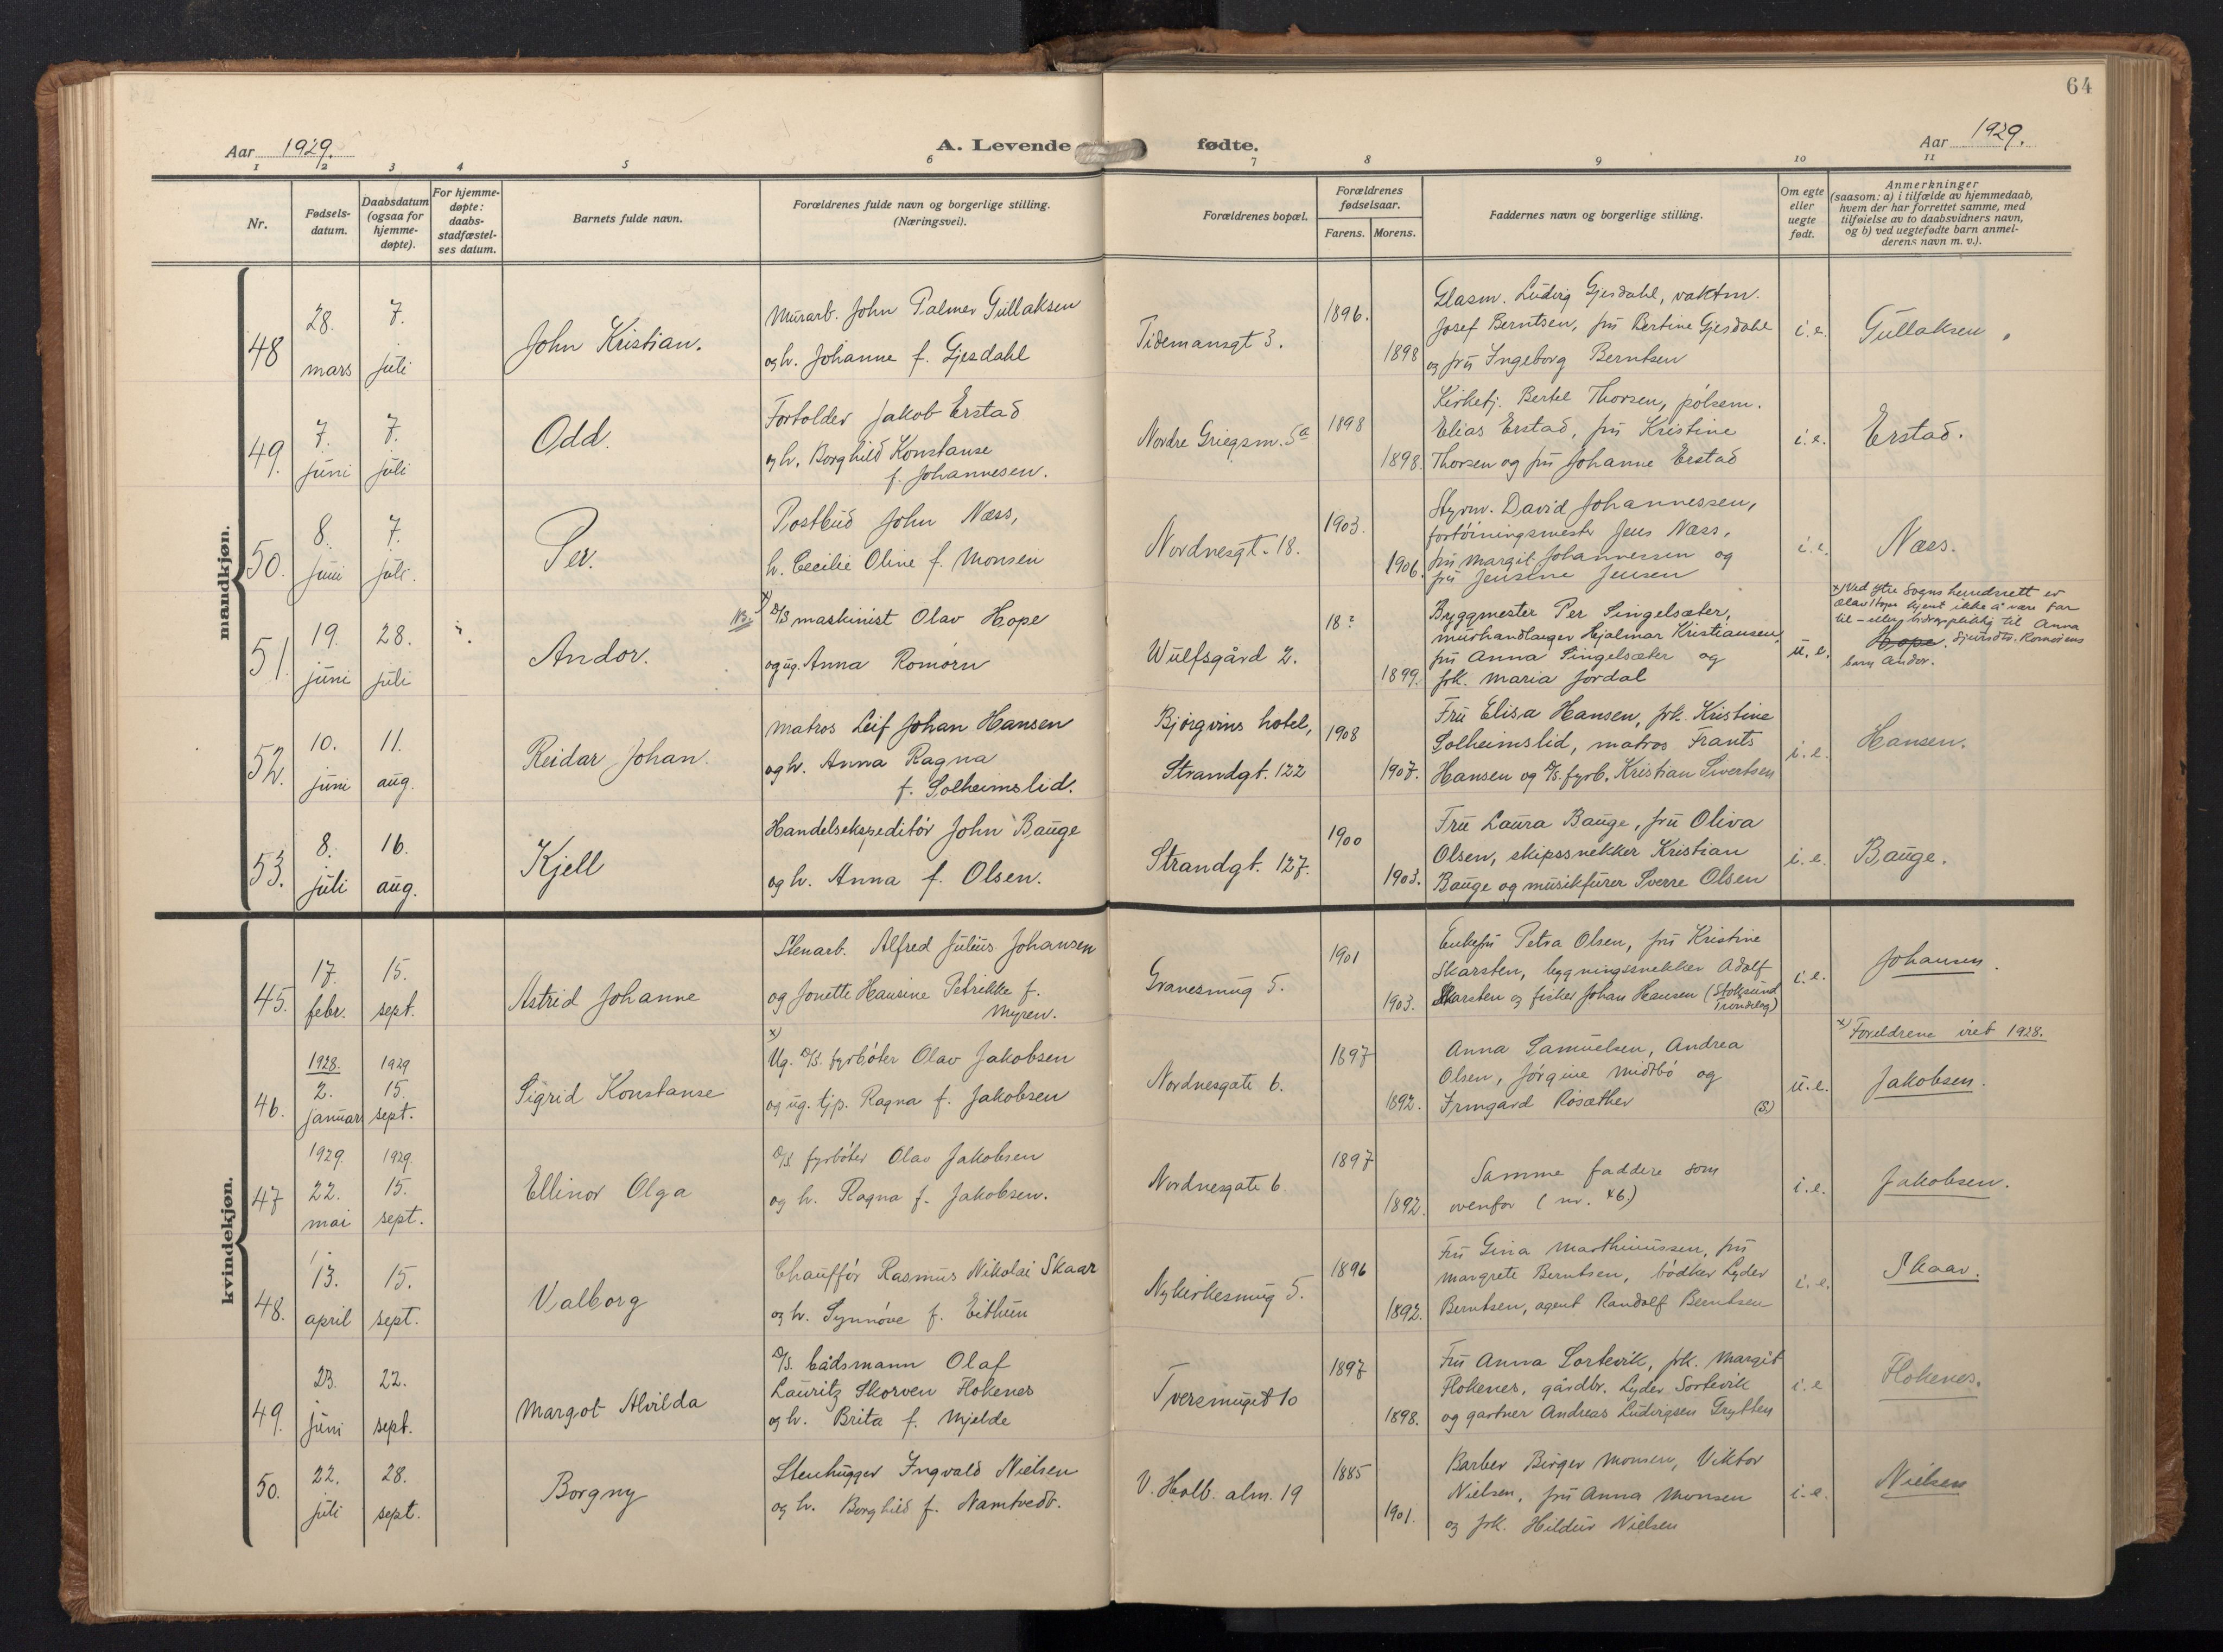 64
Aar 1929.
A. Levende fødte.
Aar 1929.
1 2 3 4 5 6 7 8 9 10 11
Nr.
Fødsels-
datum.
Daabsdatum
(ogsaa for
hjemme-
døpte).
For hjemme-
døpte:
daabs-
stadfæstel-
ses datum.
Barnets fulde navn.
Forældrenes fulde navn og borgerlige stilling.
(Næringsvei).
Forældrenes bopæl.
Forældrenes
fødselsaar.
Farens. Morens.
Faddernes navn og borgerlige stilling.
Om egte
eller
uegte
født.
Anmerkninger
(saasom: a) i tilfælde av hjemmedaab,
hvem der har forrettet samme, med
tilføielse av to daabsvidners navn,
og b) ved uegtefødte barn anmel-
derens navn m. v.).
mandkjøn.
48
28.
mars
7.
juli
John Kristian.
Murarb. John Palmer Gullaksen
og h. Johanne f. Gjesdahl
Tidemansgt 3.
1896.
1898
Glasm. Ludvig Gjesdahl, vaktm.
Josef Berntsen, fru Bertine Gjesdahl
og fru Ingeborg Berntsen
i. e.
Gullaksen
49.
7.
juni
7.
juli
Odd.
Forholder Jakob Erstad
og h. Borghild Konstanse
f. Johannesen.
Nordre Griegsm. 5a
1898
1898.
Kirketj. Bertel Thorsen, pølsem.
Elias Erstad, fru Kristine
Thorsen og fru Johanne Erstad
i. e.
Erstad.
50.
8.
juni
7.
juli.
Per.
Postbud John Næss,
h. Cecilie Oline f. Monsen
Nordnesgt. 18.
1903.
1906.
Styrm. David Johannessen,
fortøiningsmester Jens Næss,
fru Margit Johannessen og
fru Jensine Jensen
i. e.
Næss.
51.
19.
juni
28.
juli
Andor.
NB.
x) D/S maskinist Olav Hope
og ug. Anna Romørn
Wulfsgård 2.
18?
1899.
Byggmester Per Singelsæter,
murhandlanger Hjalmar Kristiansen,
fru Anna Singelsæter og
frk. Maria Jordal
u. e.
x) Ved Ytre Sogns herredsrett er
Olav Hope kjent ikke å være far
til - eller bidragspliktig til Anna
Hope. Romørens
barn Andor.
52.
10.
juni
11.
aug.
Reidar Johan.
Matros Leif Johan Hansen
og h. Anna Ragna
f. Solheimslid.
Bjørgvins hotel,
Strandgt. 122
1908
1907.
Fru Elisa Hansen, frk. Kristine
Solheimslid, matros Frants
Hansen og D/S. fyrb. Kristian Sivertsen
i. e.
Hansen.
53.
8.
juli
16.
aug.
Kjell
Handelsekspeditør John Bauge
og h. Anna f. Olsen.
Strandgt. 127.
1900
1903.
Fru Laura Bauge, fru Oliva
Olsen, skipssnekker Kristian
Bauge og musikfurer Sverre Olsen
i. e.
Bauge.
kvindekjøn.
45.
17.
febr.
15.
sept.
Astrid Johanne
Stenarb. Alfred Julius Johansen
og Jonette Hansine Petrikke f.
Myren.
Granesmug 5.
1901
1903.
Enkefru Petra Olsen, fru Kristine
Skarsten, bygningssnekker Adolf
Skarsten og fisker Johan Hansen (Stoksund
Trøndelag)
i. e.
Johansen.
46.
1928.
2.
januar
1929
15.
sept.
Sigrid Konstanse
x)
Ug. D/S. fyrbøter Olav Jakobsen
og ug. tjp. Ragna f. Jakobsen
Nordnesgate 6.
1897
1892.
Anna Samuelsen, Andrea
Olsen, Jørgine Midtbø og
Irmgard Rosæther (S.)
u. e.
x) Foreldrene viet 1928.
Jakobsen.
47
1929.
22.
mai
1929.
15.
sept.
Ellinor Olga
D/S fyrbøter Olav Jakobsen
og h. Ragna f. Jakobsen.
Nordnesgate 6
1897
1892.
Samme faddere som
ovenfor (nr. 46.)
i. e.
Jakobsen.
48.
13.
april
15.
sept.
Valborg
Chauffør Rasmus Nikolai Skaar
og h. Synnøve f. Eithun
Nykirkesmug 5.
1896
1892.
Fru Gina Marthinussen, fru
Margrete Berntsen, bødker Lyder
Berntsen, agent Randolf Berntsen
i. e.
Skaar.
49.
23.
juni
22.
sept.
Margot Alvilda
D/S. båtsmann Olaf
Lauritz Skorven Flokenes
og h. Brita f. Mjelde
Tversmuget 10
1897
1898.
Fru Anna Sortevik, frk. Margit
Flokenes, gårdbr. Lyder Sortevik
og gartner Andreas Ludvigsen Grytten
i. e
Flokenes.
50.
22.
juli
28.
sept.
Borgny
Stenhugger Ingvald Nielsen
og h. Borghild f. Namtvedt.
V. Holb. alm. 19
1885
1901.
Barber Birger Monsen, Viktor
Nielsen, fru Anna Monsen
og frk. Hildur Nielsen
i. e.
Nielsen